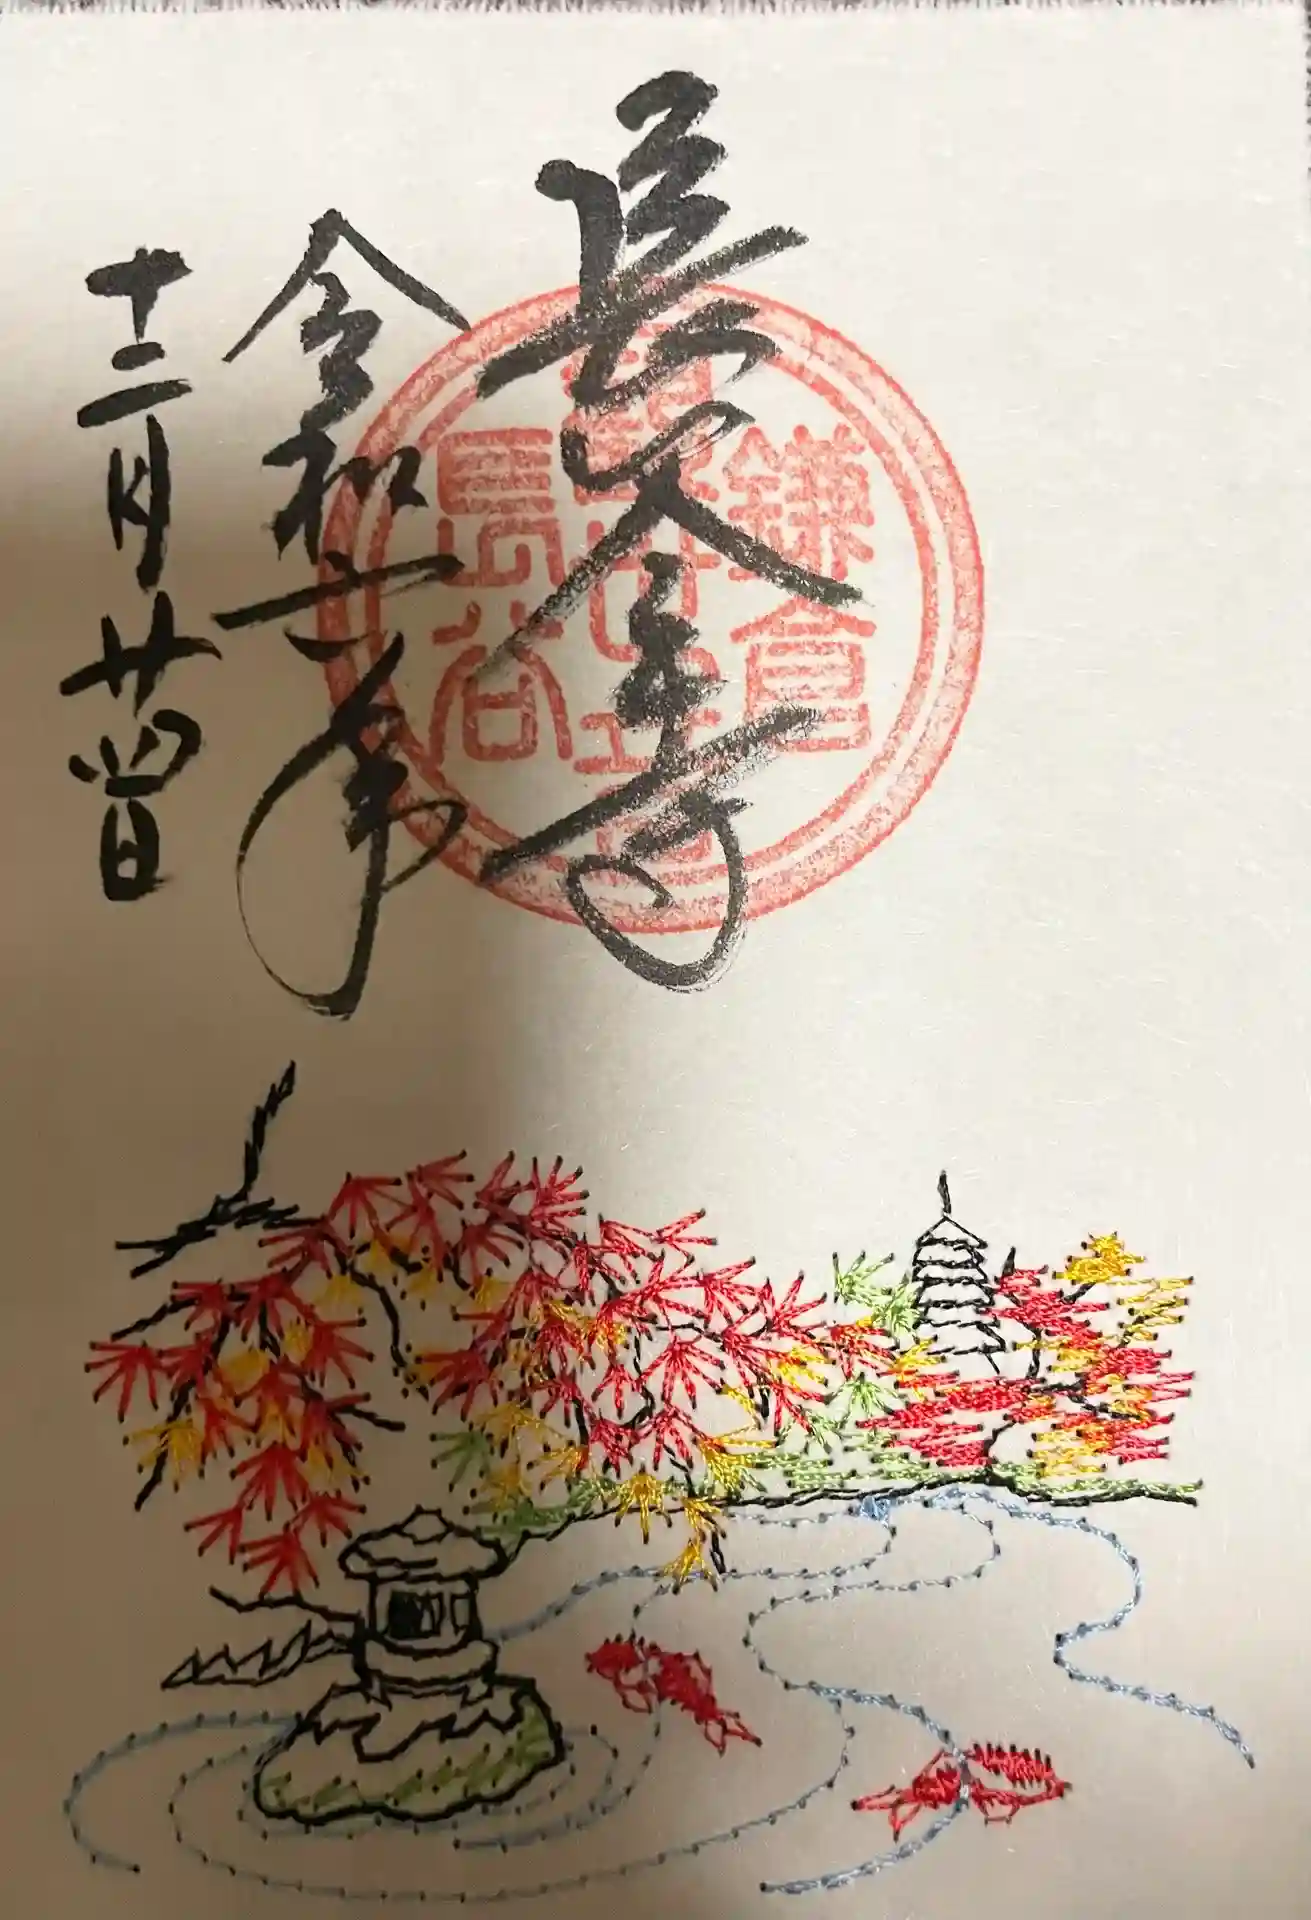 長谷寺
令和六年
十二月廿四日
鎌倉
長谷